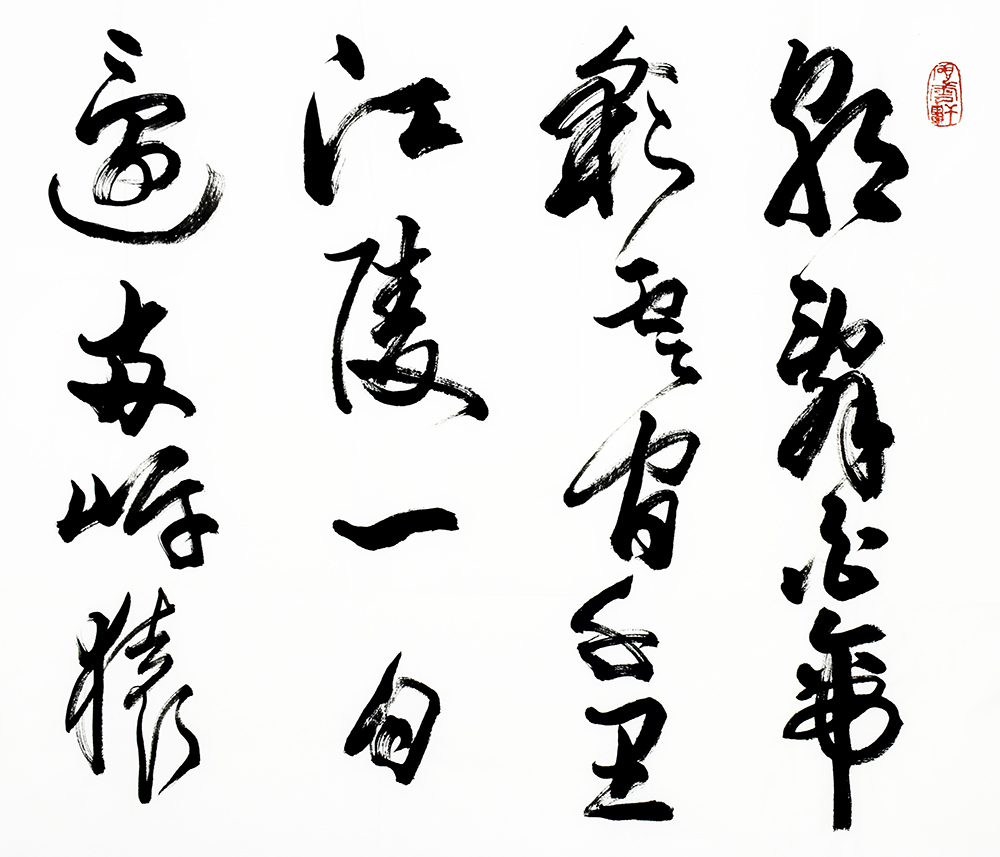 朝辭白帝
彩雲間千里
江陵一日
還兩岸猿